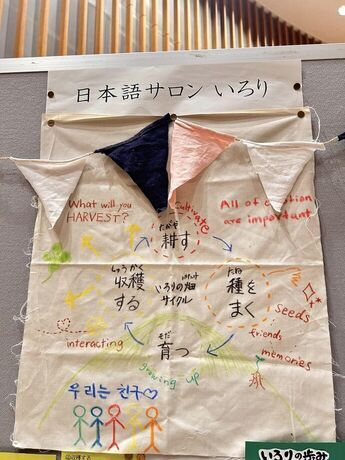 日本語サロン いろり
What will you
HARVEST?
Cultivate
All of
are important
たがや
耕す
しゅうかく
収穫
する
いろりの畑
サイクル
たね
種を
まく
seeds
friends
memories
interacting
そだ
育つ
growing up
우리는 친구♡
いろりの歩み